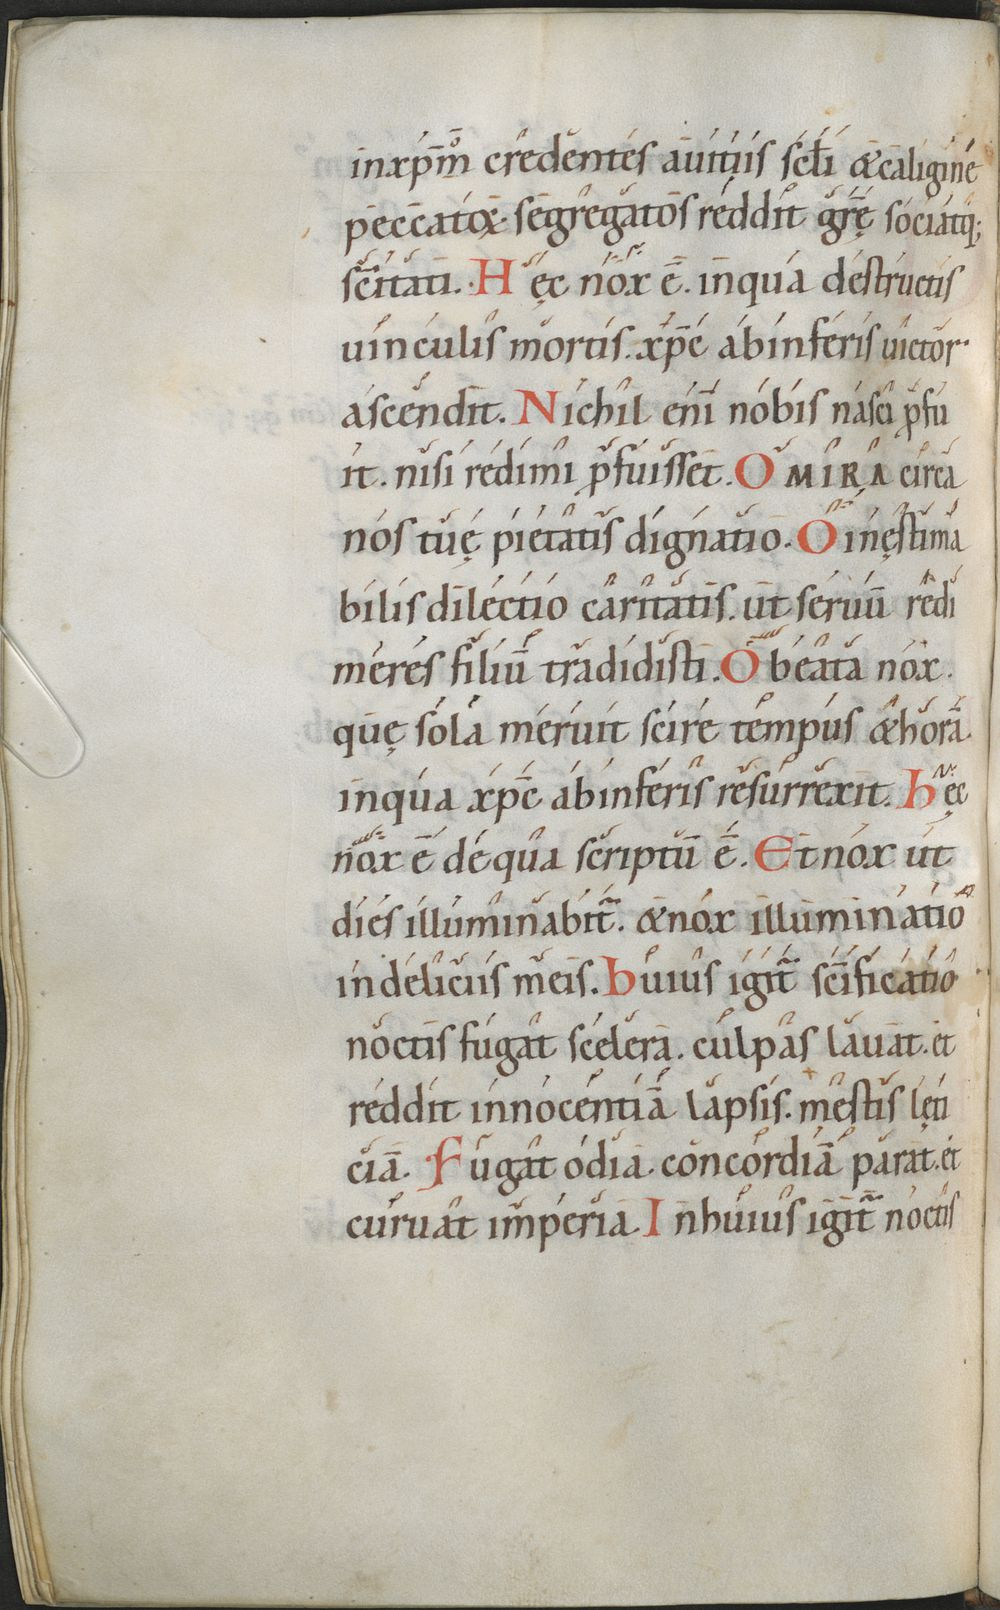 inxp̄m credentes auitiis scłi &caligine
peccatoꝝ. segregatos reddit grę̄ sociatq;
scītati. Hęc nox ē. inqua destructis
uinculis mortis. xp̄c abinferis uictor
ascendit. Nichil eni̅ nobis nasci ꝓfu
it. nisi redimi ꝓfuisset. O MIRA circa
nos tuę pietatis dignatio. O inęstima
bilis dilectio caritatis. ut seruū redi
meres filiū tradidisti. O beata nox.
quę sola meruit scire tempus &horā
inqua xp̄c abinferis resurrexit. hęc
nox ē dequa scriptū ē. Et nox ut
dies illuminabit̄. &nox illuminatio
indeliciis meis. huius igit̄ scīficatio
noctis fugat scęlera. culpas lauat. et
reddit innocentiā lapsis. męstis lęti
ciā. Fugat odia. concordiā parat. et
curuat imperia. Inhuius igit̄ noctis